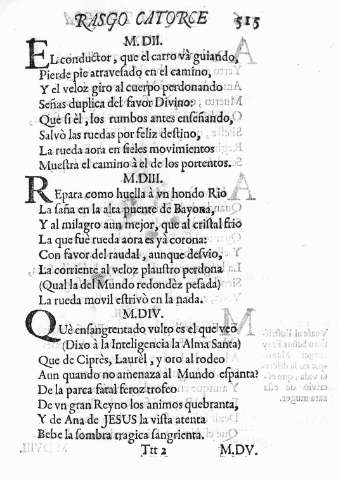 RASGO CATORCE 515
M.DII.
EL conductor, que el carro và guiando,
Pierde pie atravesado en el camino,
Y el veloz giro al cuerpo perdonando
Señas duplica del favor Divino:
Que si èl, los rumbos antes enseñando,
Salvò las ruedas por feliz destino,
La rueda aora en fieles movimientos
Muestra el camino à el de los portentos.
M.DIII.
REpara como huella à vn hondo Rio
La saña en la alta puente de Bayona,
Y al milagro aun mejor, que al cristal frio
La que fuè rueda aora es yà corona:
Con favor del raudal, aunque desvio,
La corriente al veloz plaustro perdona
(Qual la del Mundo redondèz pesada)
La rueda movil estrivò en la nada.
M.DIV.
QUè ensangrentado vulto es el que veo
(Dixo à la Inteligencia la Alma Santa)
Que de Ciprès, Laurèl, y oro al rodeo
Aun quando no amenaza al Mundo espanta?
De la parca fatal feroz trofeo
De vn gran Reyno los animos quebranta,
Y de Ana de JESUS la vista atenta
Bebe la sombra tragica sangrienta.
Ttt 2 M.DV.